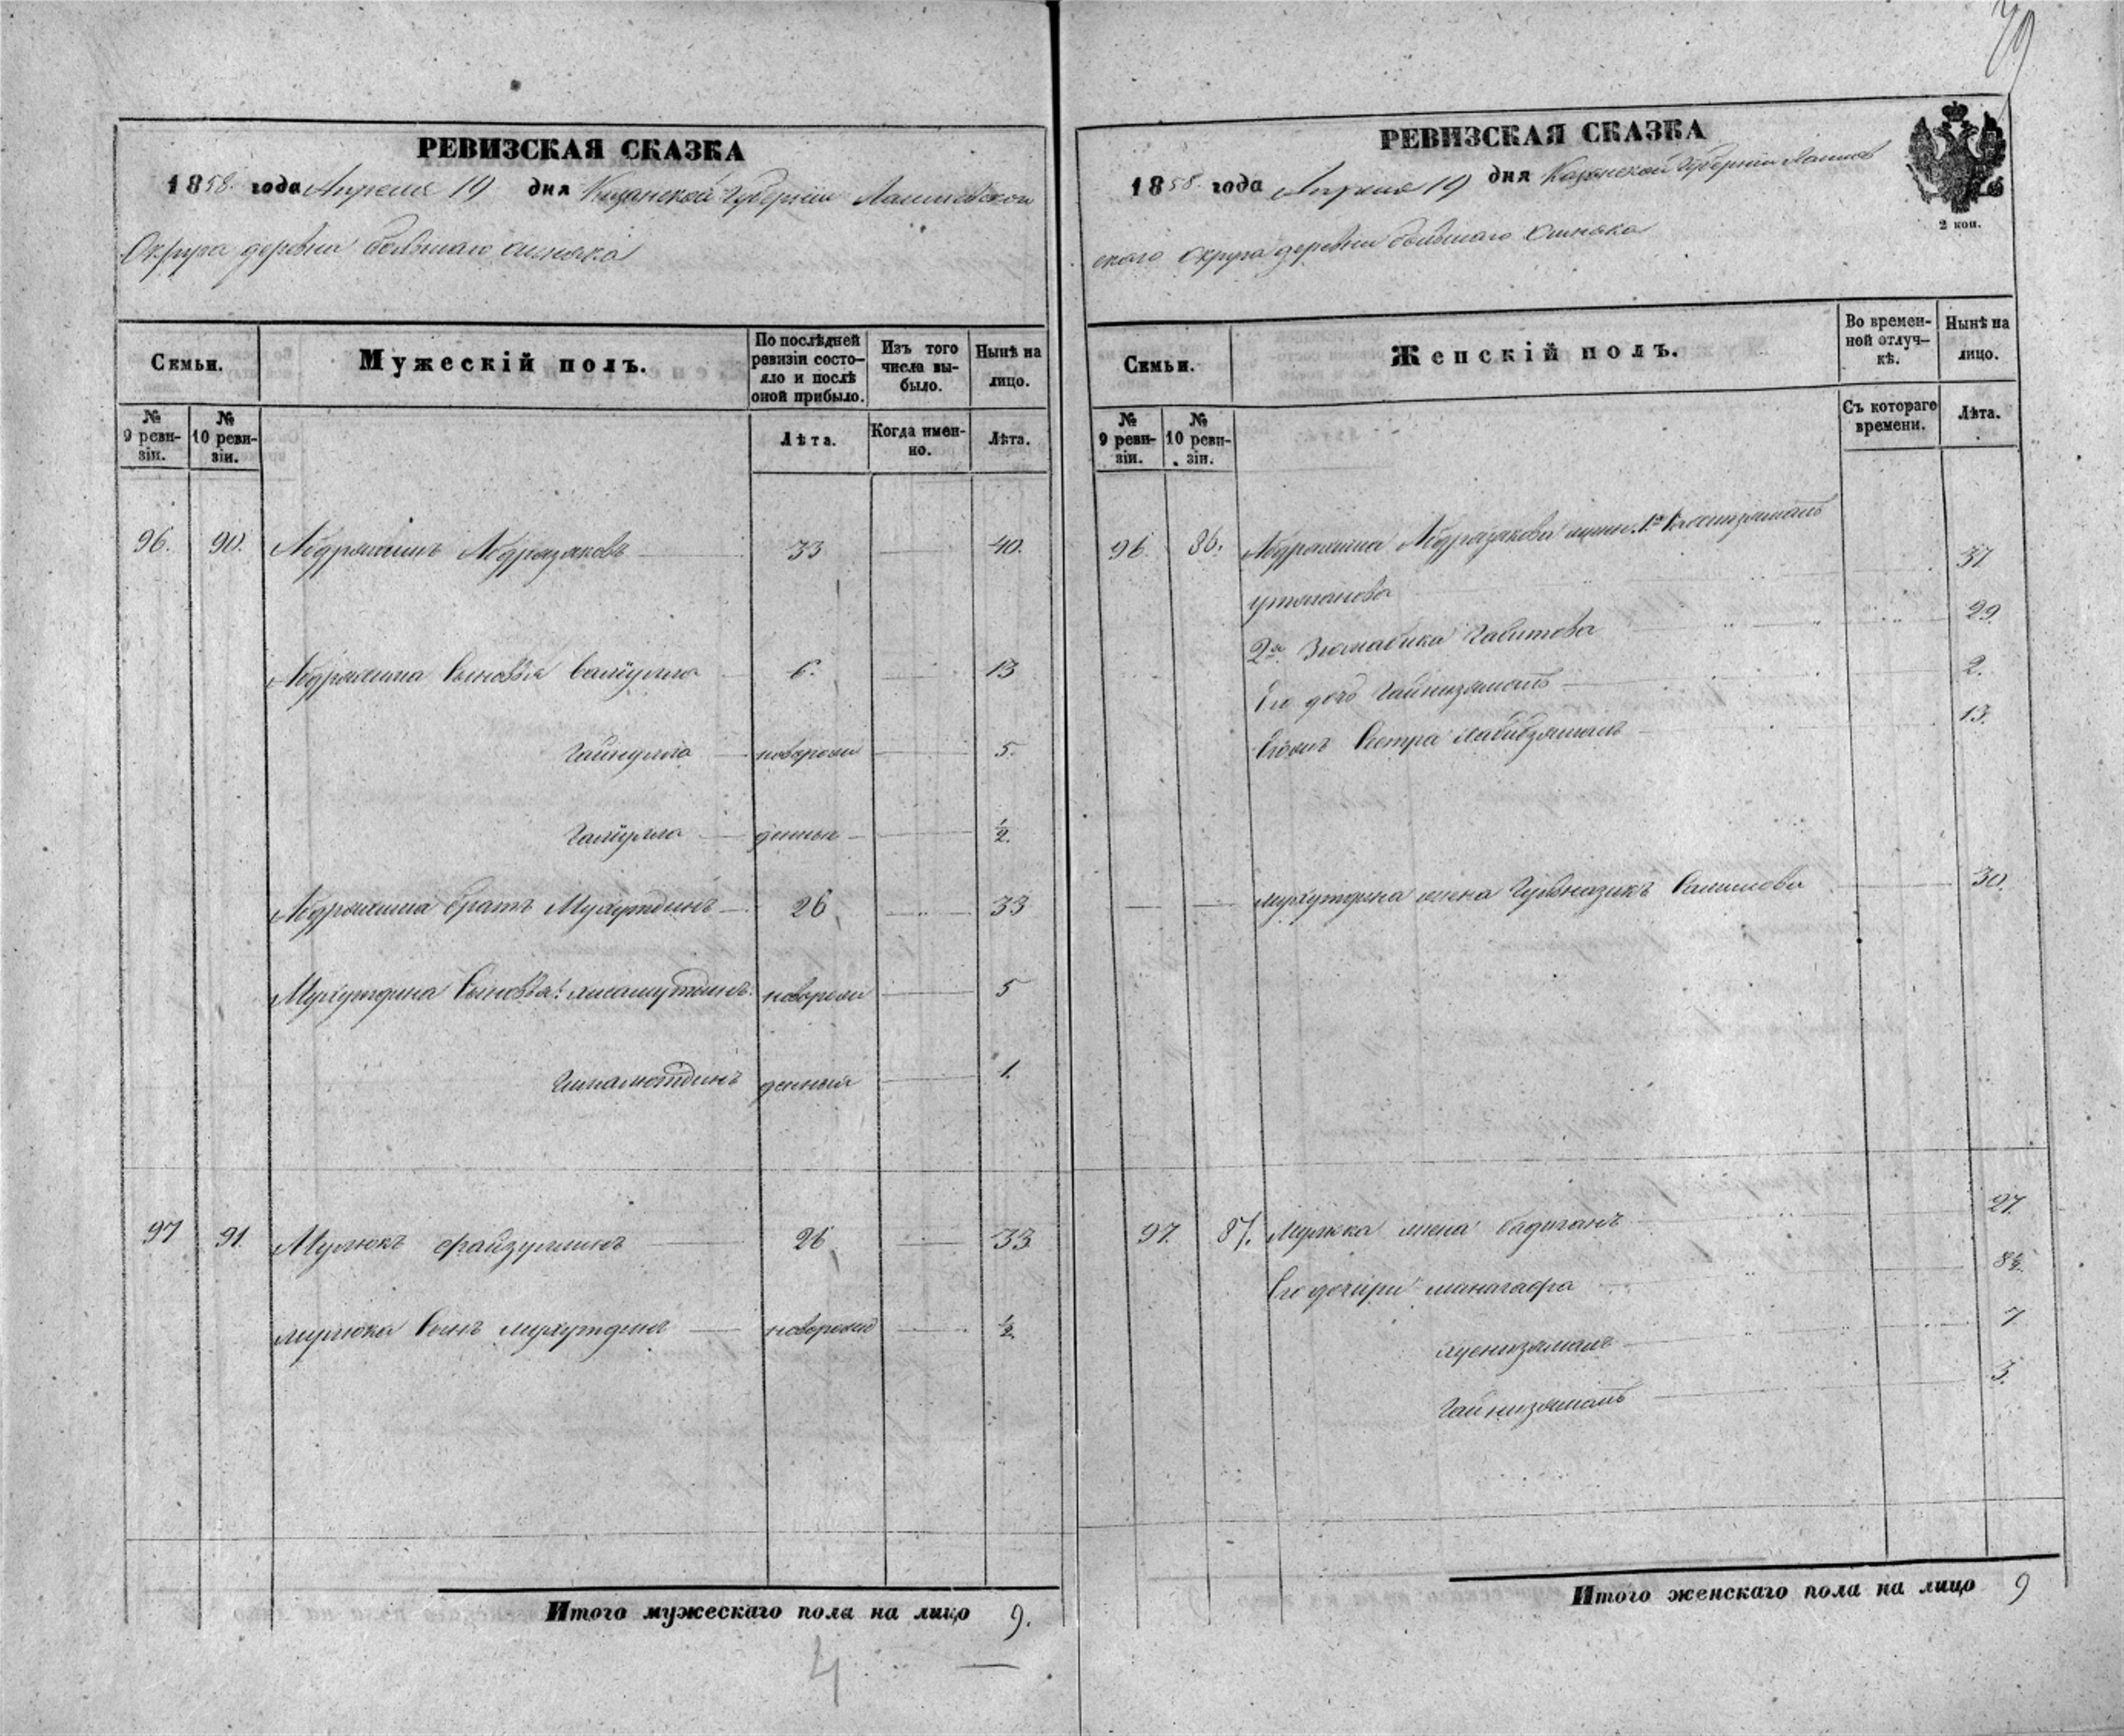 79
РЕВИЗСКАЯ СКАЗКА
1858 года Апреля 19 дня Казанской Губернии Лаишевского
Округа деревни большаго
Семьи.
Мужескій полъ.
По послѣдней ревизіи состо-
яло и послѣ
оной прибыло.
Изъ того
числа вы-
было.
Нынѣ на
лицо.
№
9 реви-
зіи.
№
10 реви-
зіи.
Лѣта.
Когда имен-
но.
Лѣта.
96. 90. Абдрахимъ Абдразаковъ 33 40.
Абдрахима Сыновья Валіулла 6. 13
Гайнулла новорож 5.
Галіулла денные ½.
Абдрахима братъ Мухутдинъ 26 33
Мухутдина Сыновья: новорож 5
денныя 1.
97 91. Мулюкъ Файзуллинъ 26 33
Мулюка Сынъ Мухутдинъ новорожд ½.
Итого мужескаго пола на лицо 9.
4
РЕВИЗСКАЯ СКАЗКА
1858. года Апреля 19 дня Казанской Губернии Лаишев
скаго Округа деревни большаго
2 коп.
Семьи.
Женскій полъ.
Во времен-
ной отлуч-
кѣ.
Нынѣ на
лицо.
№
9 реви-
зіи.
№
10 реви-
зіи.
Съ котораго
времени.
Лѣта.
96. 86. Абдрахима Абдразакова жена 1я
37
2я Габитова 29
Его дочь Гайнизямаль 2.
Сестра Хабибзямаль 13.
Мухутдина жена Гульназикъ Салимова 30.
97. 87. Мулюка жена 27.
Его дочери 8½.
7
Гайнизямаль 3.
Итого женскаго пола на лицо 9